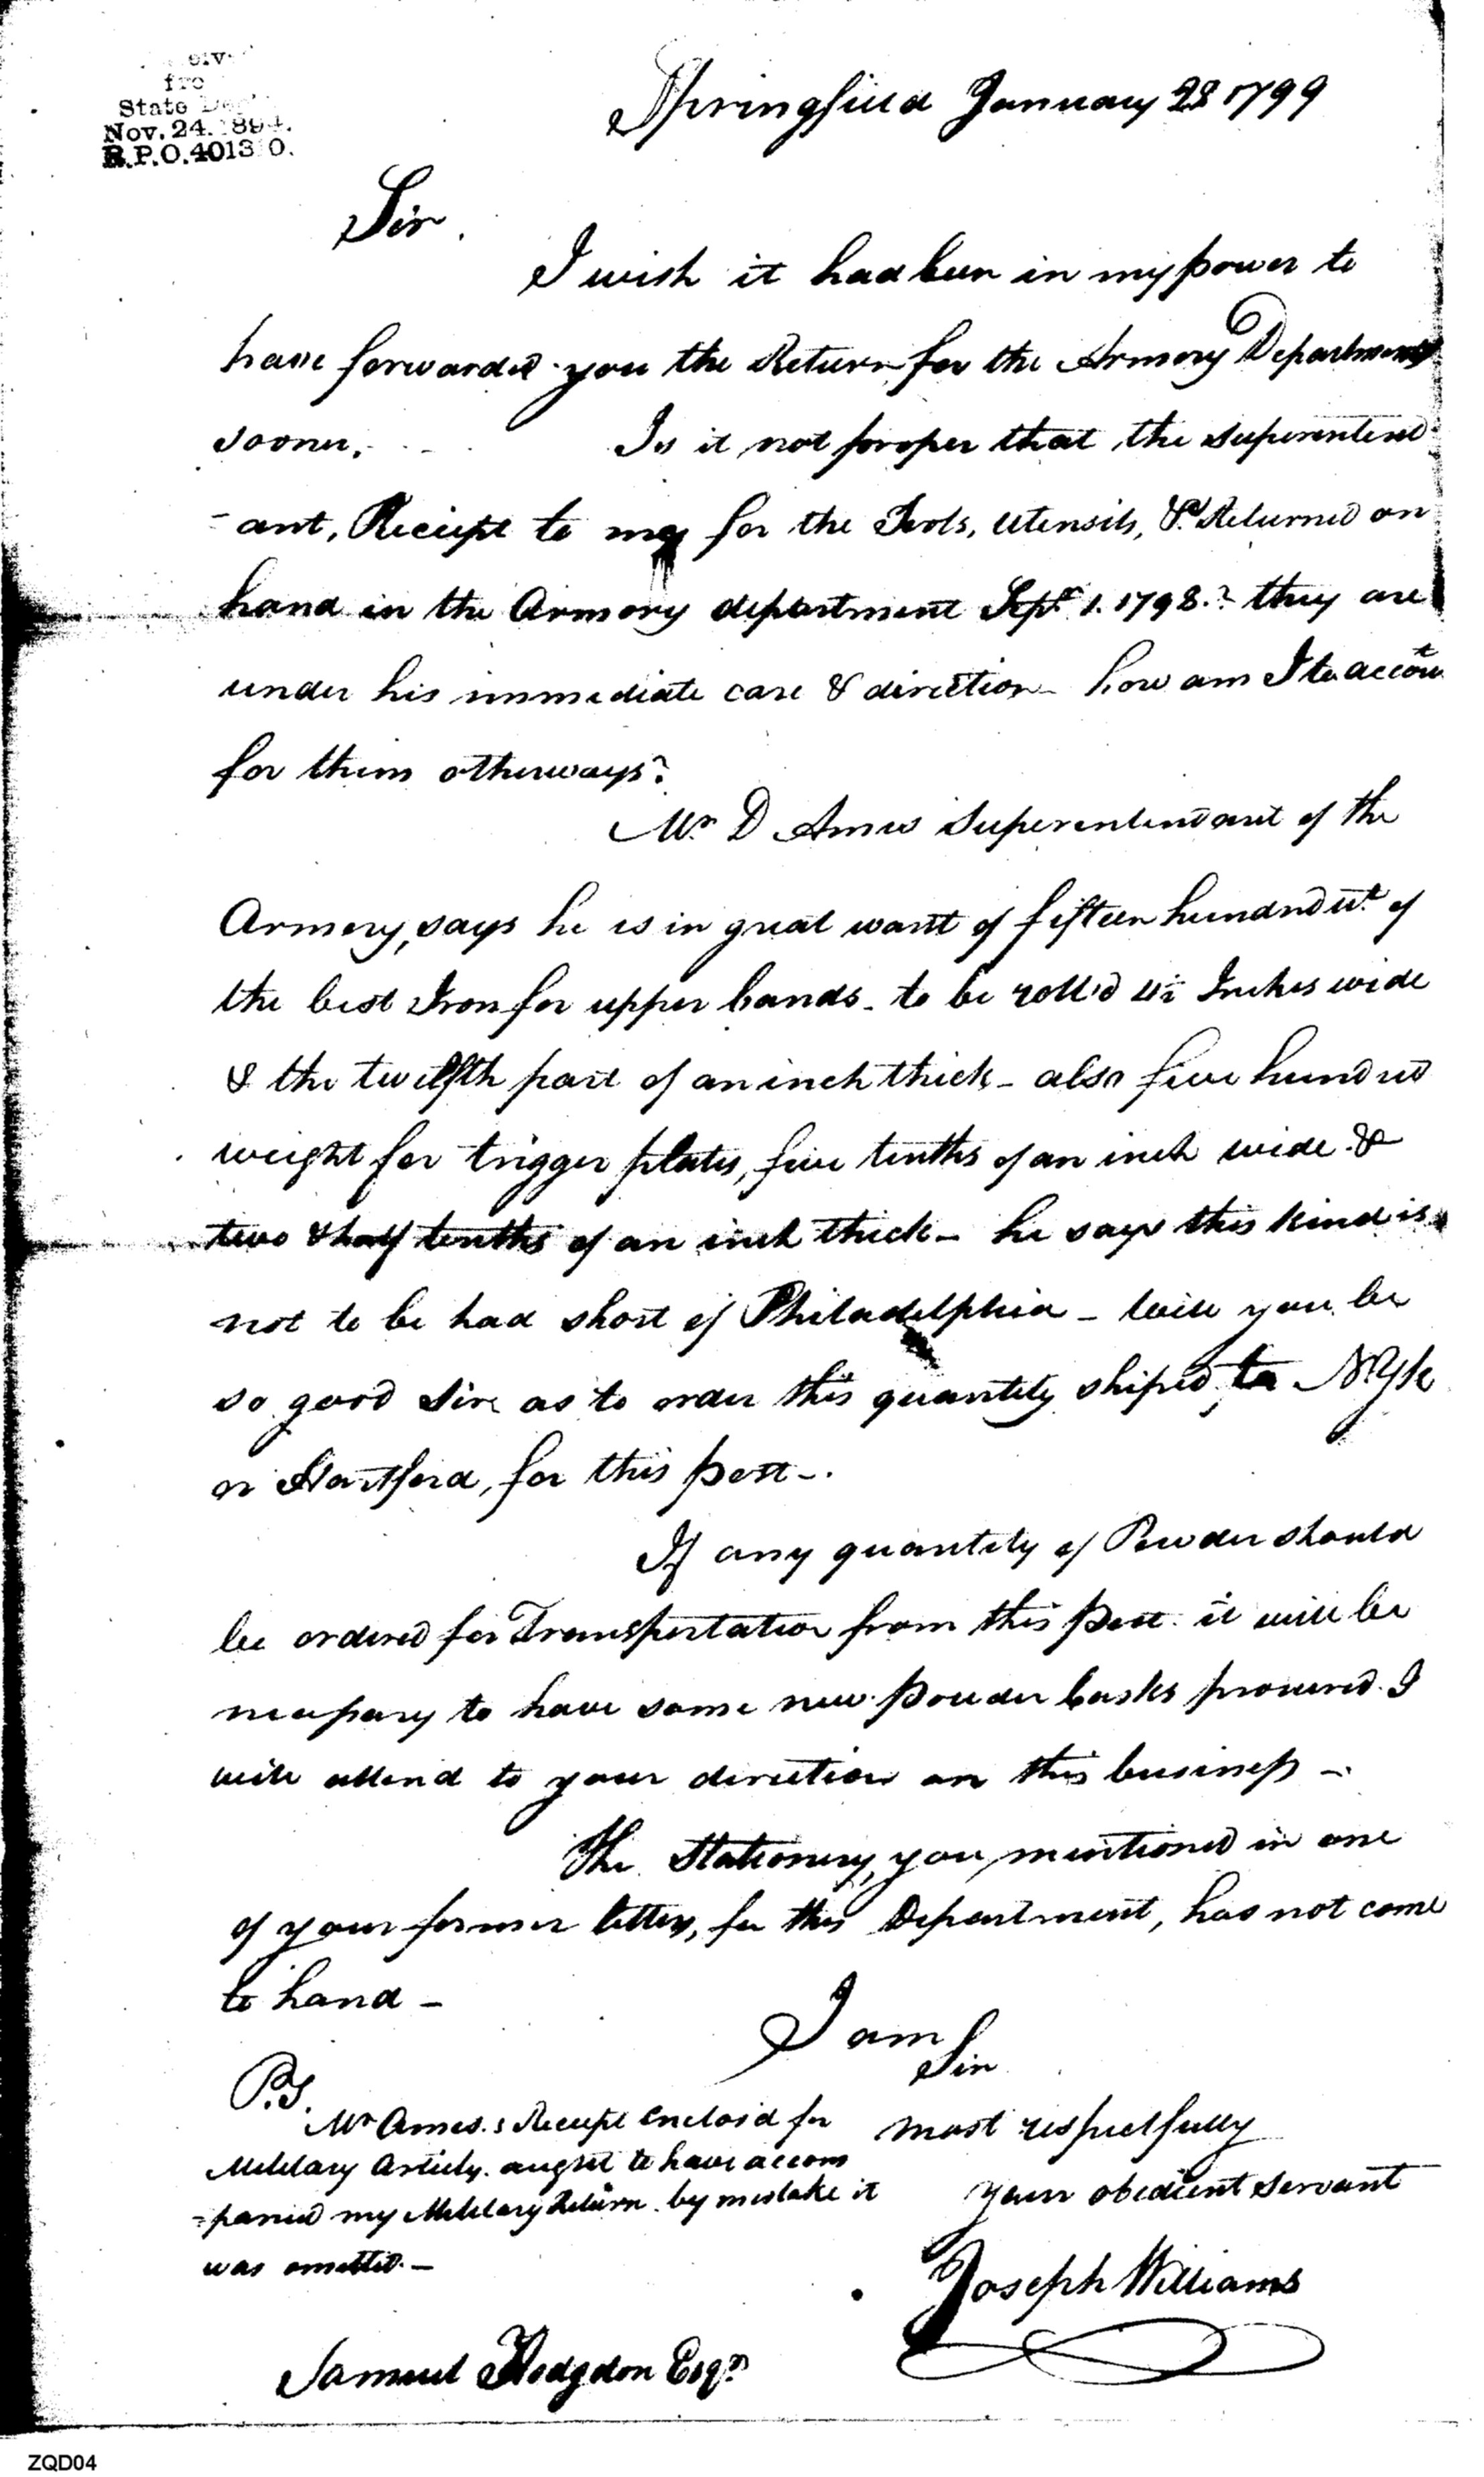 State
Nov. 24. 1894.
R.P.O. 4013 0.
Springfield January 28 1799
Sir.
I wish it had been in my power to
have forwarded you the Return for the Armory Department
sooner.
Is it not proper that the Superentend
-ant, Receipt to me for the Tools, Utensils, &c. Returned on
hand in the Armory department Sept. 1. 1798.? they are
under his immediate care & direction - how am I to accout
for them otherways?
Mr. D Ames Superentendant of the
Armory, says he is in great want of fifteen hundred wt. of
the best Iron for upper bands - to be roll'd 4½ Inches wide
& the twelfth part of an inch thick - also five hundred
weight for trigger plates, five tenths of an inch wide &
two & half tenths of an inch thick - he says this kind is
not to be had short of Philadelphia - Will you be
so good Sir, as to order this quantity shiped, to N. York
or Hartford, for this post -.
If any quantity of Powder should
be ordered for Transportation from this Post. it will be
necessary to have some new powder Casks procured. I
will attend to your direction on this business -.
The Stationery, you mentioned in one
of your former letters, for this Department, has not come
to hand -
I am
Sir
most respectfully
your obedient Servant
Joseph Williams
P.S.
Mr Ames.s Receipt Enclosd for
Military Articls. aught to have accom
=panied my Military Return. by mistake it
was omitted. -
Samuel Hodgdon Esqr.
ZQD04